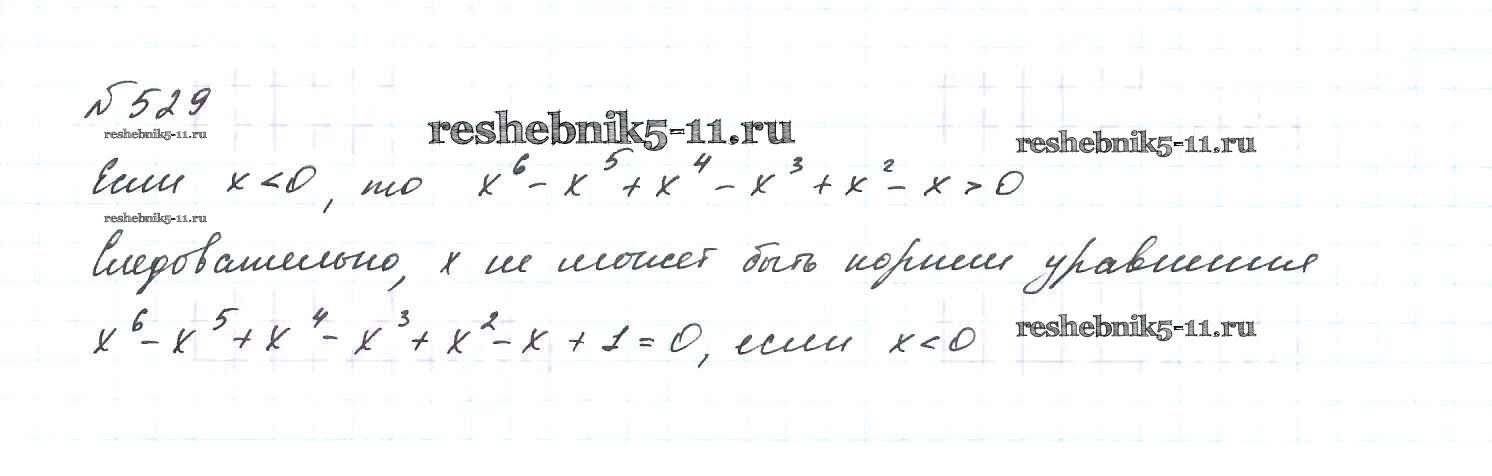 № 529
reshebnik5-11.ru
reshebnik5-11.ru
reshebnik5-11.ru
Если x < 0, то x⁶ - x⁵ + x⁴ - x³ + x² - x > 0
reshebnik5-11.ru
Следовательно, x не может быть корнем уравнения
x⁶ - x⁵ + x⁴ - x³ + x² - x + 1 = 0, если x < 0
reshebnik5-11.ru